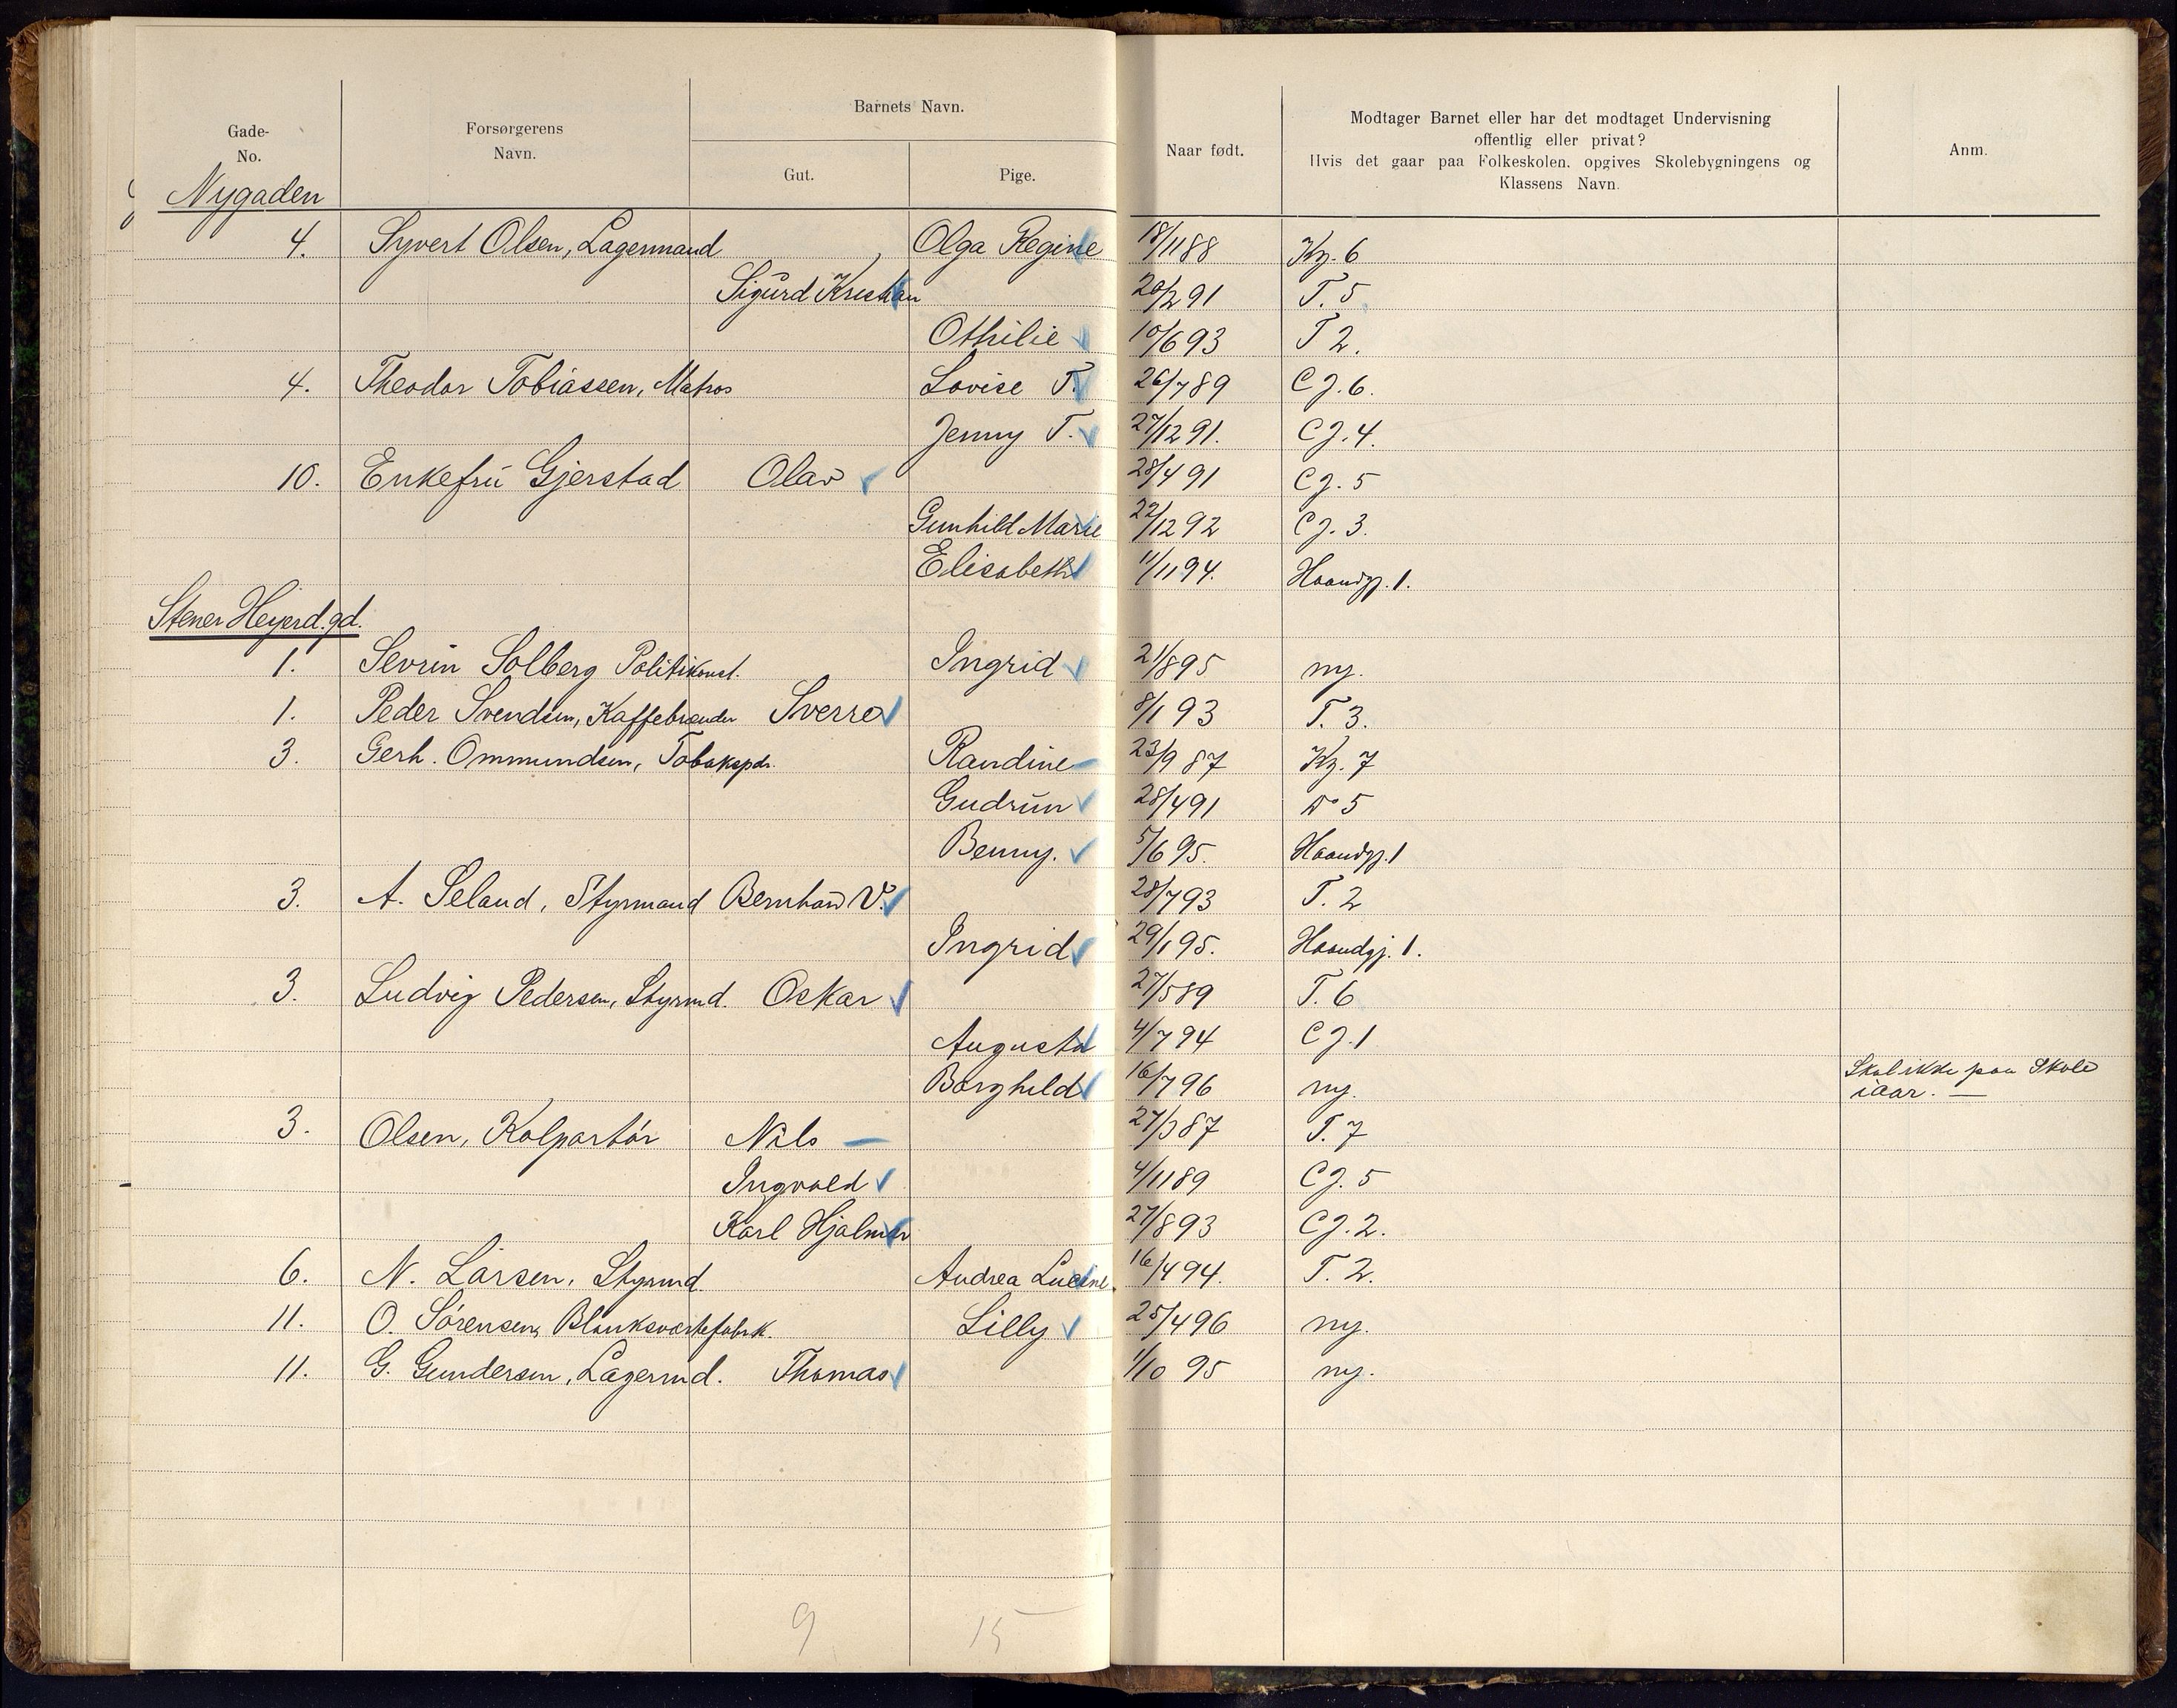 Gade-
No.
Forsørgerens
Navn.
Barnets Navn.
Gut.
Pige.
Naar født.
Modtager Barnet eller har det modtaget Undervisning
offentlig eller privat?
Hvis det gaar paa Folkeskolen, opgives Skolebygningens og
Klassens Navn.
Anm.
Nygaden
4. Syvert Olsen, Lagermand Olga Regine 18/11 88 Kg. 6
Sigurd Kristian 20/2 91 T. 5
Othilie 10/6 93 T 2.
4. Theodor Tobiassen, Matros Lovise T. 26/7 89 C J. 6.
Jenny T. 27/12 91. C J. 4.
10. Enkefru Gjerstad Olav 28/4 91 C J. 5
Gunhild Marie 22/12 92 C J. 3.
Elisabeth 11/11 94. Haandgj. 1.
Stener Heyerd. gd.
1. Sevrin Solberg Politikonst. Ingrid 21/8 95 ny.
1. Peder Svendsen, Kaffebrænder Sverre 8/1 93 T. 3.
3. Gerh. Ommundsen, Tobakspd. Randine 23/9 87 Kg. 7
Gudrun 28/4 91 Do 5
Benny. 5/6 95. Haandgj. 1
3. A. Seland, Styrmand Bernhard V. 28/7 93 T. 2
Ingrid 29/1 95. Haandgj. 1.
3. Ludvig Pedersen, Styrmd. Oskar 27/5 89 T. 6
Augusta 4/7 94 C J. 1
Borghild 16/7 96 ny. Skal ikke paa Skole
iaar. —
3. Olsen, Kolportør Nils — 27/3 87 T. 7
Ingvald 4/11 89 C J. 5
Karl Hjalmar 27/8 93 C J. 2.
6. N. Larsen, Styrmd. Andrea Lucine. 16/4 94. T. 2.
11. O. Sørensen, Blanksværtefabrk. Lilly 25/4 96 ny.
11. G. Gundersen, Lagermd. Thomas 1/10 95 ny.
9 15